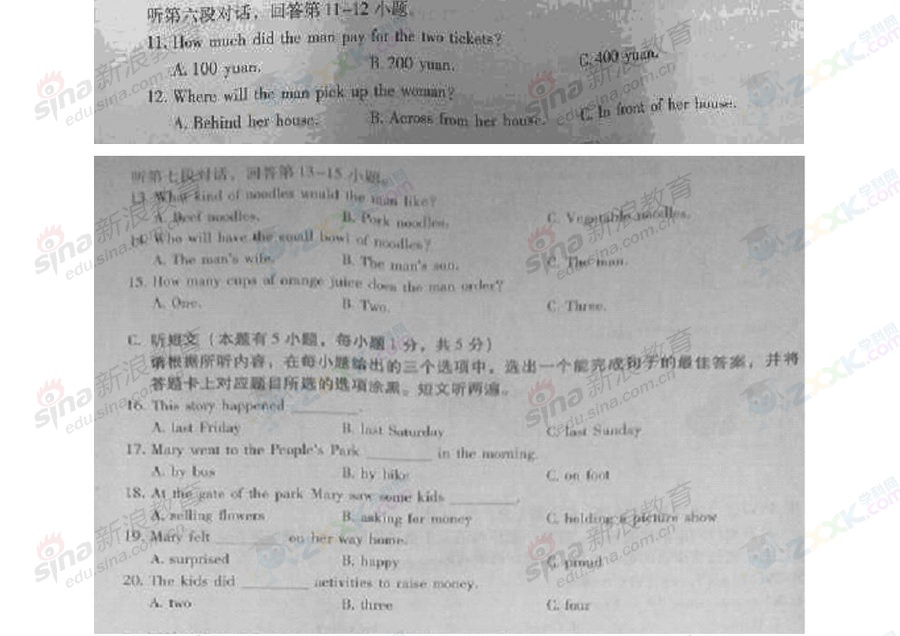 听第六段对话，回答第11-12小题。
11. How much did the man pay for the two tickets?
A. 100 yuan. B. 200 yuan. C. 400 yuan.
12. Where will the man pick up the woman?
A. Behind her house. B. Across from her house. C. In front of her house.
听第七段对话，回答第13-15小题。
13. What kind of noodles would the man like?
A. Beef noodles. B. Pork noodles. C. Vegetable noodles.
14. Who will have the small bowl of noodles?
A. The man's wife. B. The man's son. C. The man.
15. How many cups of orange juice does the man order?
A. One. B. Two. C. Three.
C. 听短文（本题有5小题，每小题1分，共5分）
请根据所听内容，在每小题给出的三个选项中，选出一个能完成句子的最佳答案，并将
答题卡上对应题目所选的选项涂黑。短文听两遍。
16. This story happened ________.
A. last Friday B. last Saturday C. last Sunday
17. Mary went to the People's Park ________ in the morning.
A. by bus B. by bike C. on foot
18. At the gate of the park Mary saw some kids ________.
A. selling flowers B. asking for money C. holding a picture show
19. Mary felt ________ on her way home.
A. surprised B. happy C. proud
20. The kids did ________ activities to raise money.
A. two B. three C. four
sina新浪教育
edu.sina.com.cn
ZXXK.com
学科网